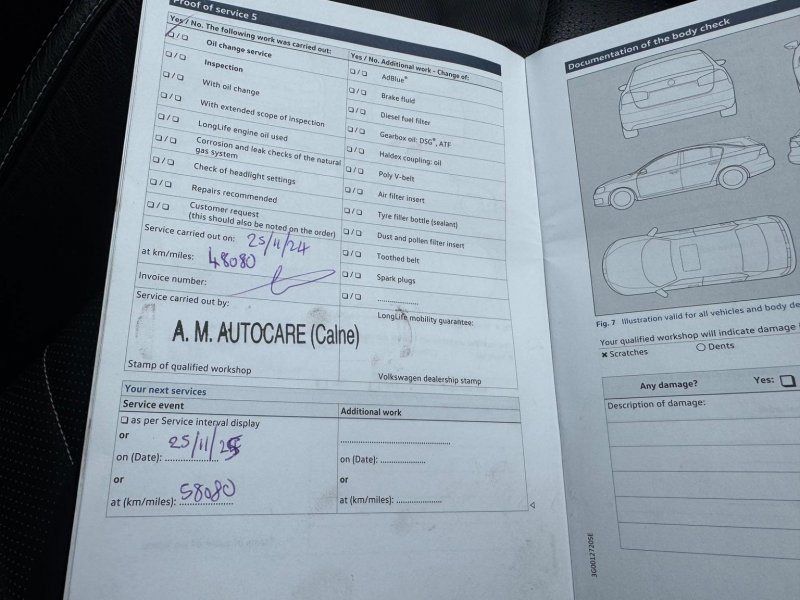 Proof of service 5
Yes / No. The following work was carried out:
Oil change service
Inspection
With oil change
With extended scope of inspection
LongLife engine oil used
Corrosion and leak checks of the natural
gas system
Check of headlight settings
Repairs recommended
Customer request
(this should also be noted on the order)
Service carried out on: 25/11/24
at km/miles: 48080
Invoice number:
Service carried out by:
A. M. AUTOCARE (Calne)
Stamp of qualified workshop
Yes / No. Additional work - Change of:
AdBlue®
Brake fluid
Diesel fuel filter
Gearbox oil: DSG®, ATF
Haldex coupling: oil
Poly V-belt
Air filter insert
Tyre filler bottle (sealant)
Dust and pollen filter insert
Toothed belt
Spark plugs
LongLife mobility guarantee:
Volkswagen dealership stamp
Your next services
Service event
as per Service interval display
or
on (Date): 25/11/25
or
at (km/miles): 58080
Additional work
on (Date):
or
at (km/miles):
Documentation of the body check
Fig. 7 Illustration valid for all vehicles and body
Your qualified workshop will indicate damage
x Scratches
O Dents
Any damage? Yes:
Description of damage:
3G0012720SE